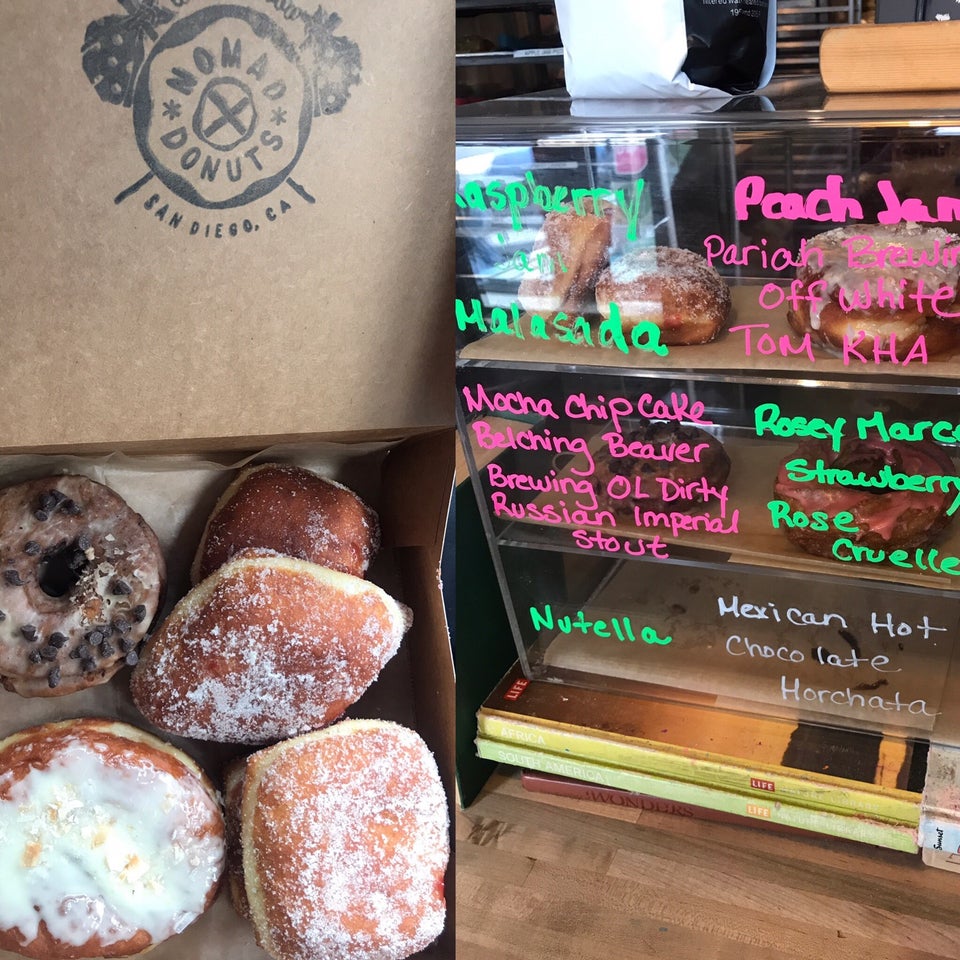 NOMAD
DONUTS
SAN DIEGO, CA
Raspberry
Jam
Malasada
Peach Jam
Pariah Brewin
Off White
TOM KHA
Mocha Chip Cake
Belching Beaver
Brewing OL Dirty
Russian Imperial
Stout
Rosey Marc
Strawberry
Rose
Cruelle
Nutella
Mexican Hot
Chocolate
Horchata
LIFE
AFRICA
LIFE
SOUTH AMERICA
LIFE
WONDERS
Sunset